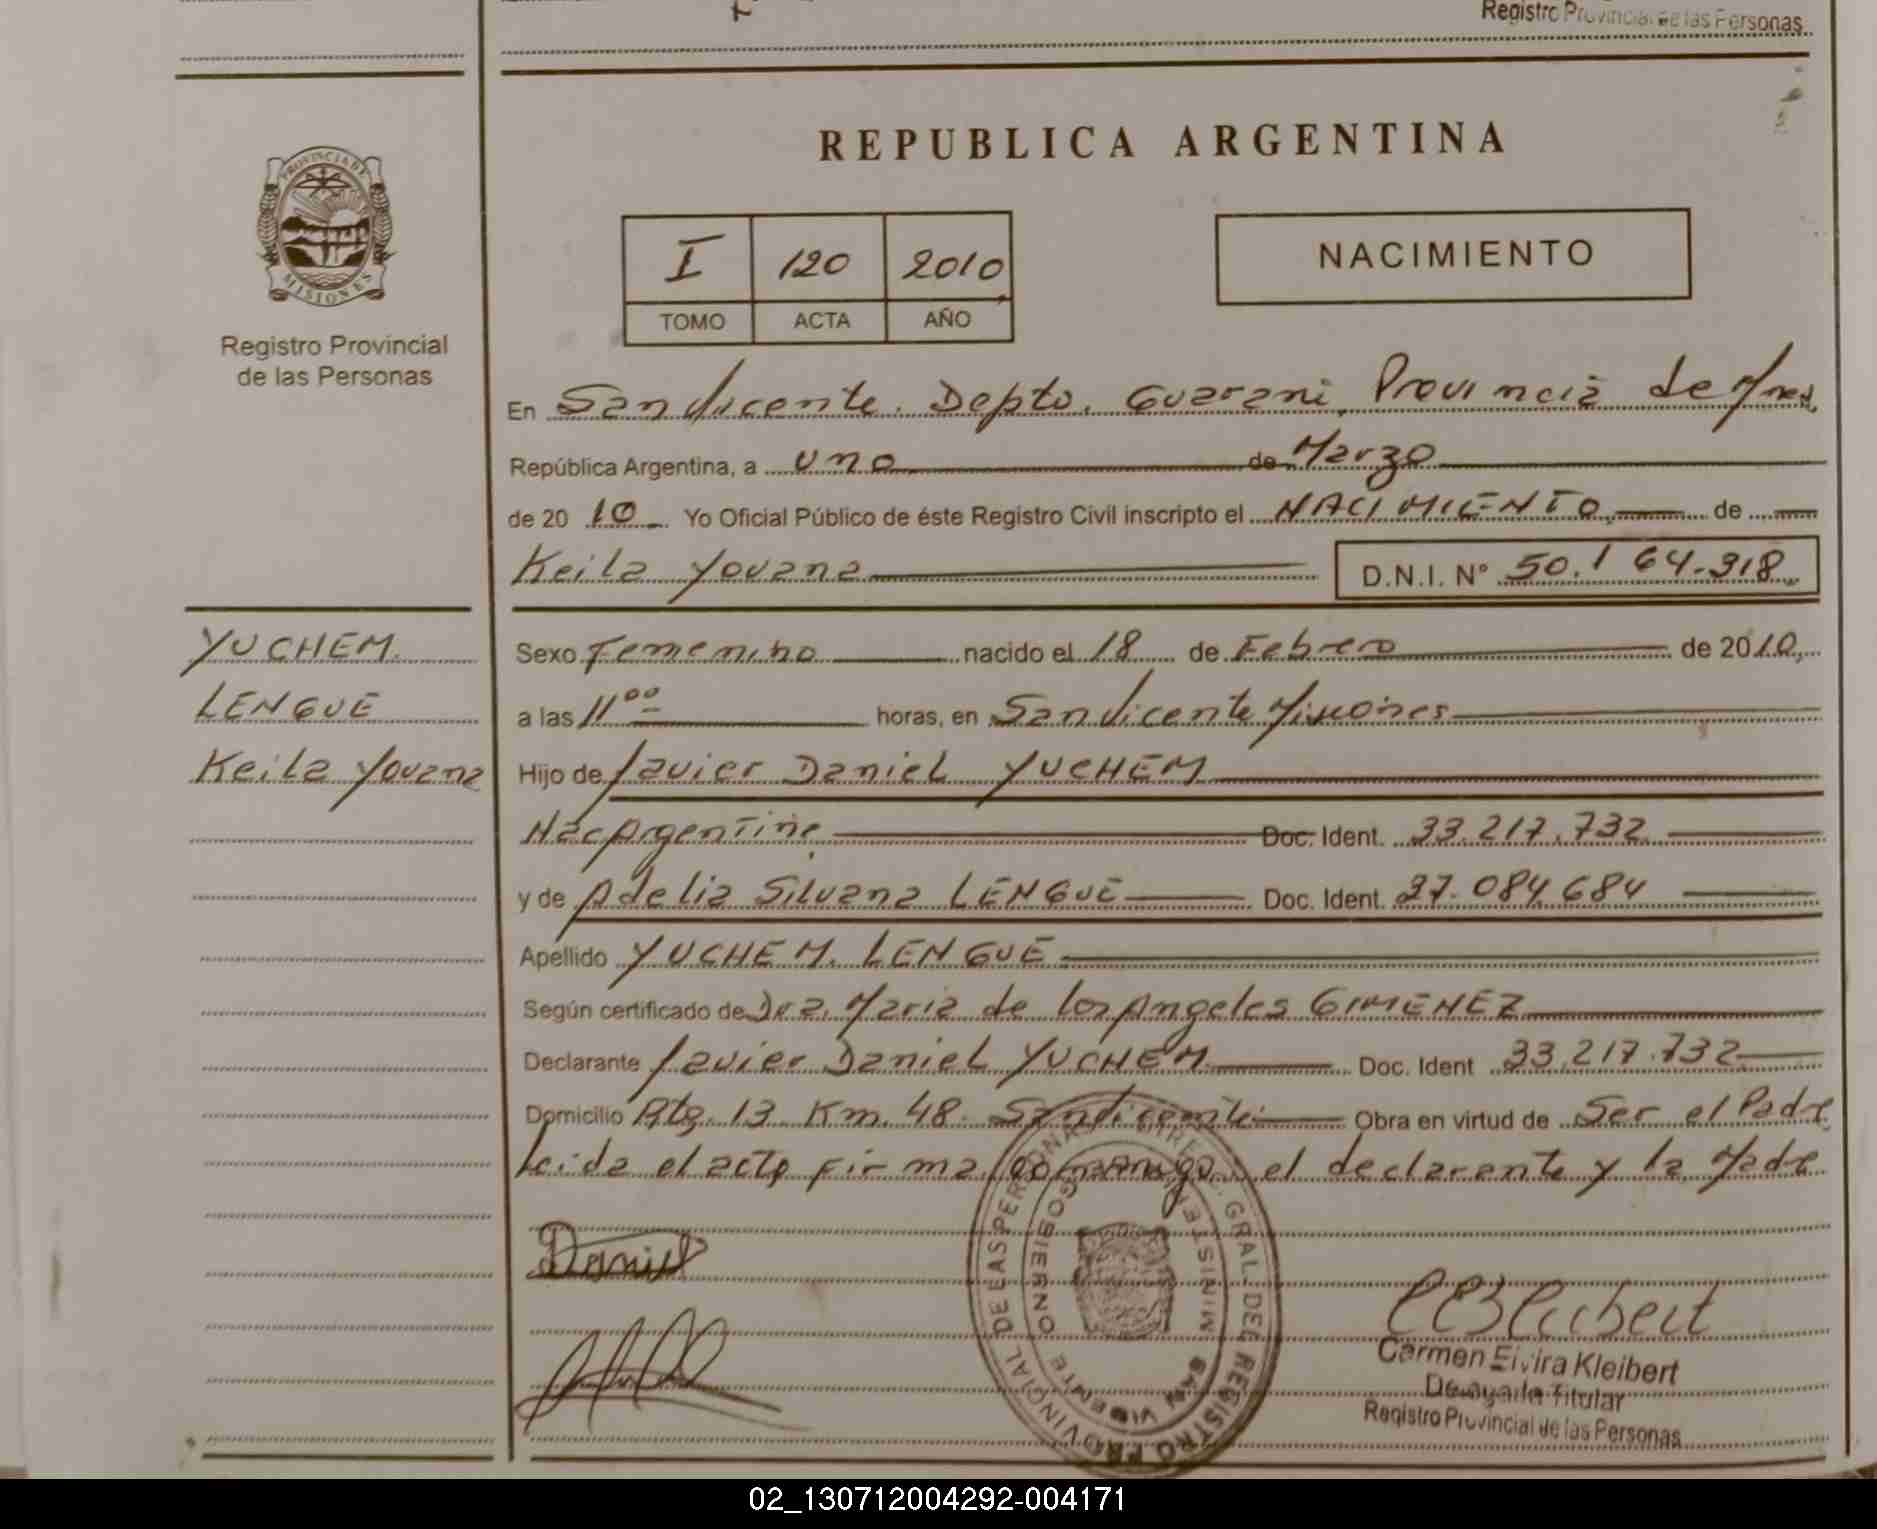 Registro Provincial de las Personas
REPUBLICA ARGENTINA
PROVINCIA DE
MISIONES
Registro Provincial
de las Personas
I 120 2010
TOMO ACTA AÑO
NACIMIENTO
En San Vicente. Depto. Guarani, Provincia de Mnes.
República Argentina, a uno de Marzo
de 20 10 Yo Oficial Público de éste Registro Civil inscripto el NACIMIENTO de
Keila Yovana D.N.I. N° 50.164.318
YUCHEM.
LENGUE
Keila Yovana
Sexo Femenino nacido el 18 de Febrero de 2010,
a las 11 00 horas, en San Vicente Misiones
Hijo de Javier Daniel YUCHEM
Nac Argentina Doc. Ident. 33.217.732
y de Adelia Silvana LENGUE Doc. Ident. 37.084.684
Apellido YUCHEM. LENGUE
Según certificado de Dra. Maria de los Angeles GIMENEZ
Declarante Javier Daniel YUCHEM Doc. Ident 33.217.732
Domicilio Rta. 13 Km. 48. San Vicente Obra en virtud de Ser el Padre
Leida el acta firma conmigo, el declarante y la Madre
Daniel
DIREC. GRAL. DEL REGISTRO PROVINCIAL DE LAS PERSONAS
SAN VICENTE
Carmen Elvira Kleibert
Delegada Titular
Registro Provincial de las Personas
02_130712004292-004171